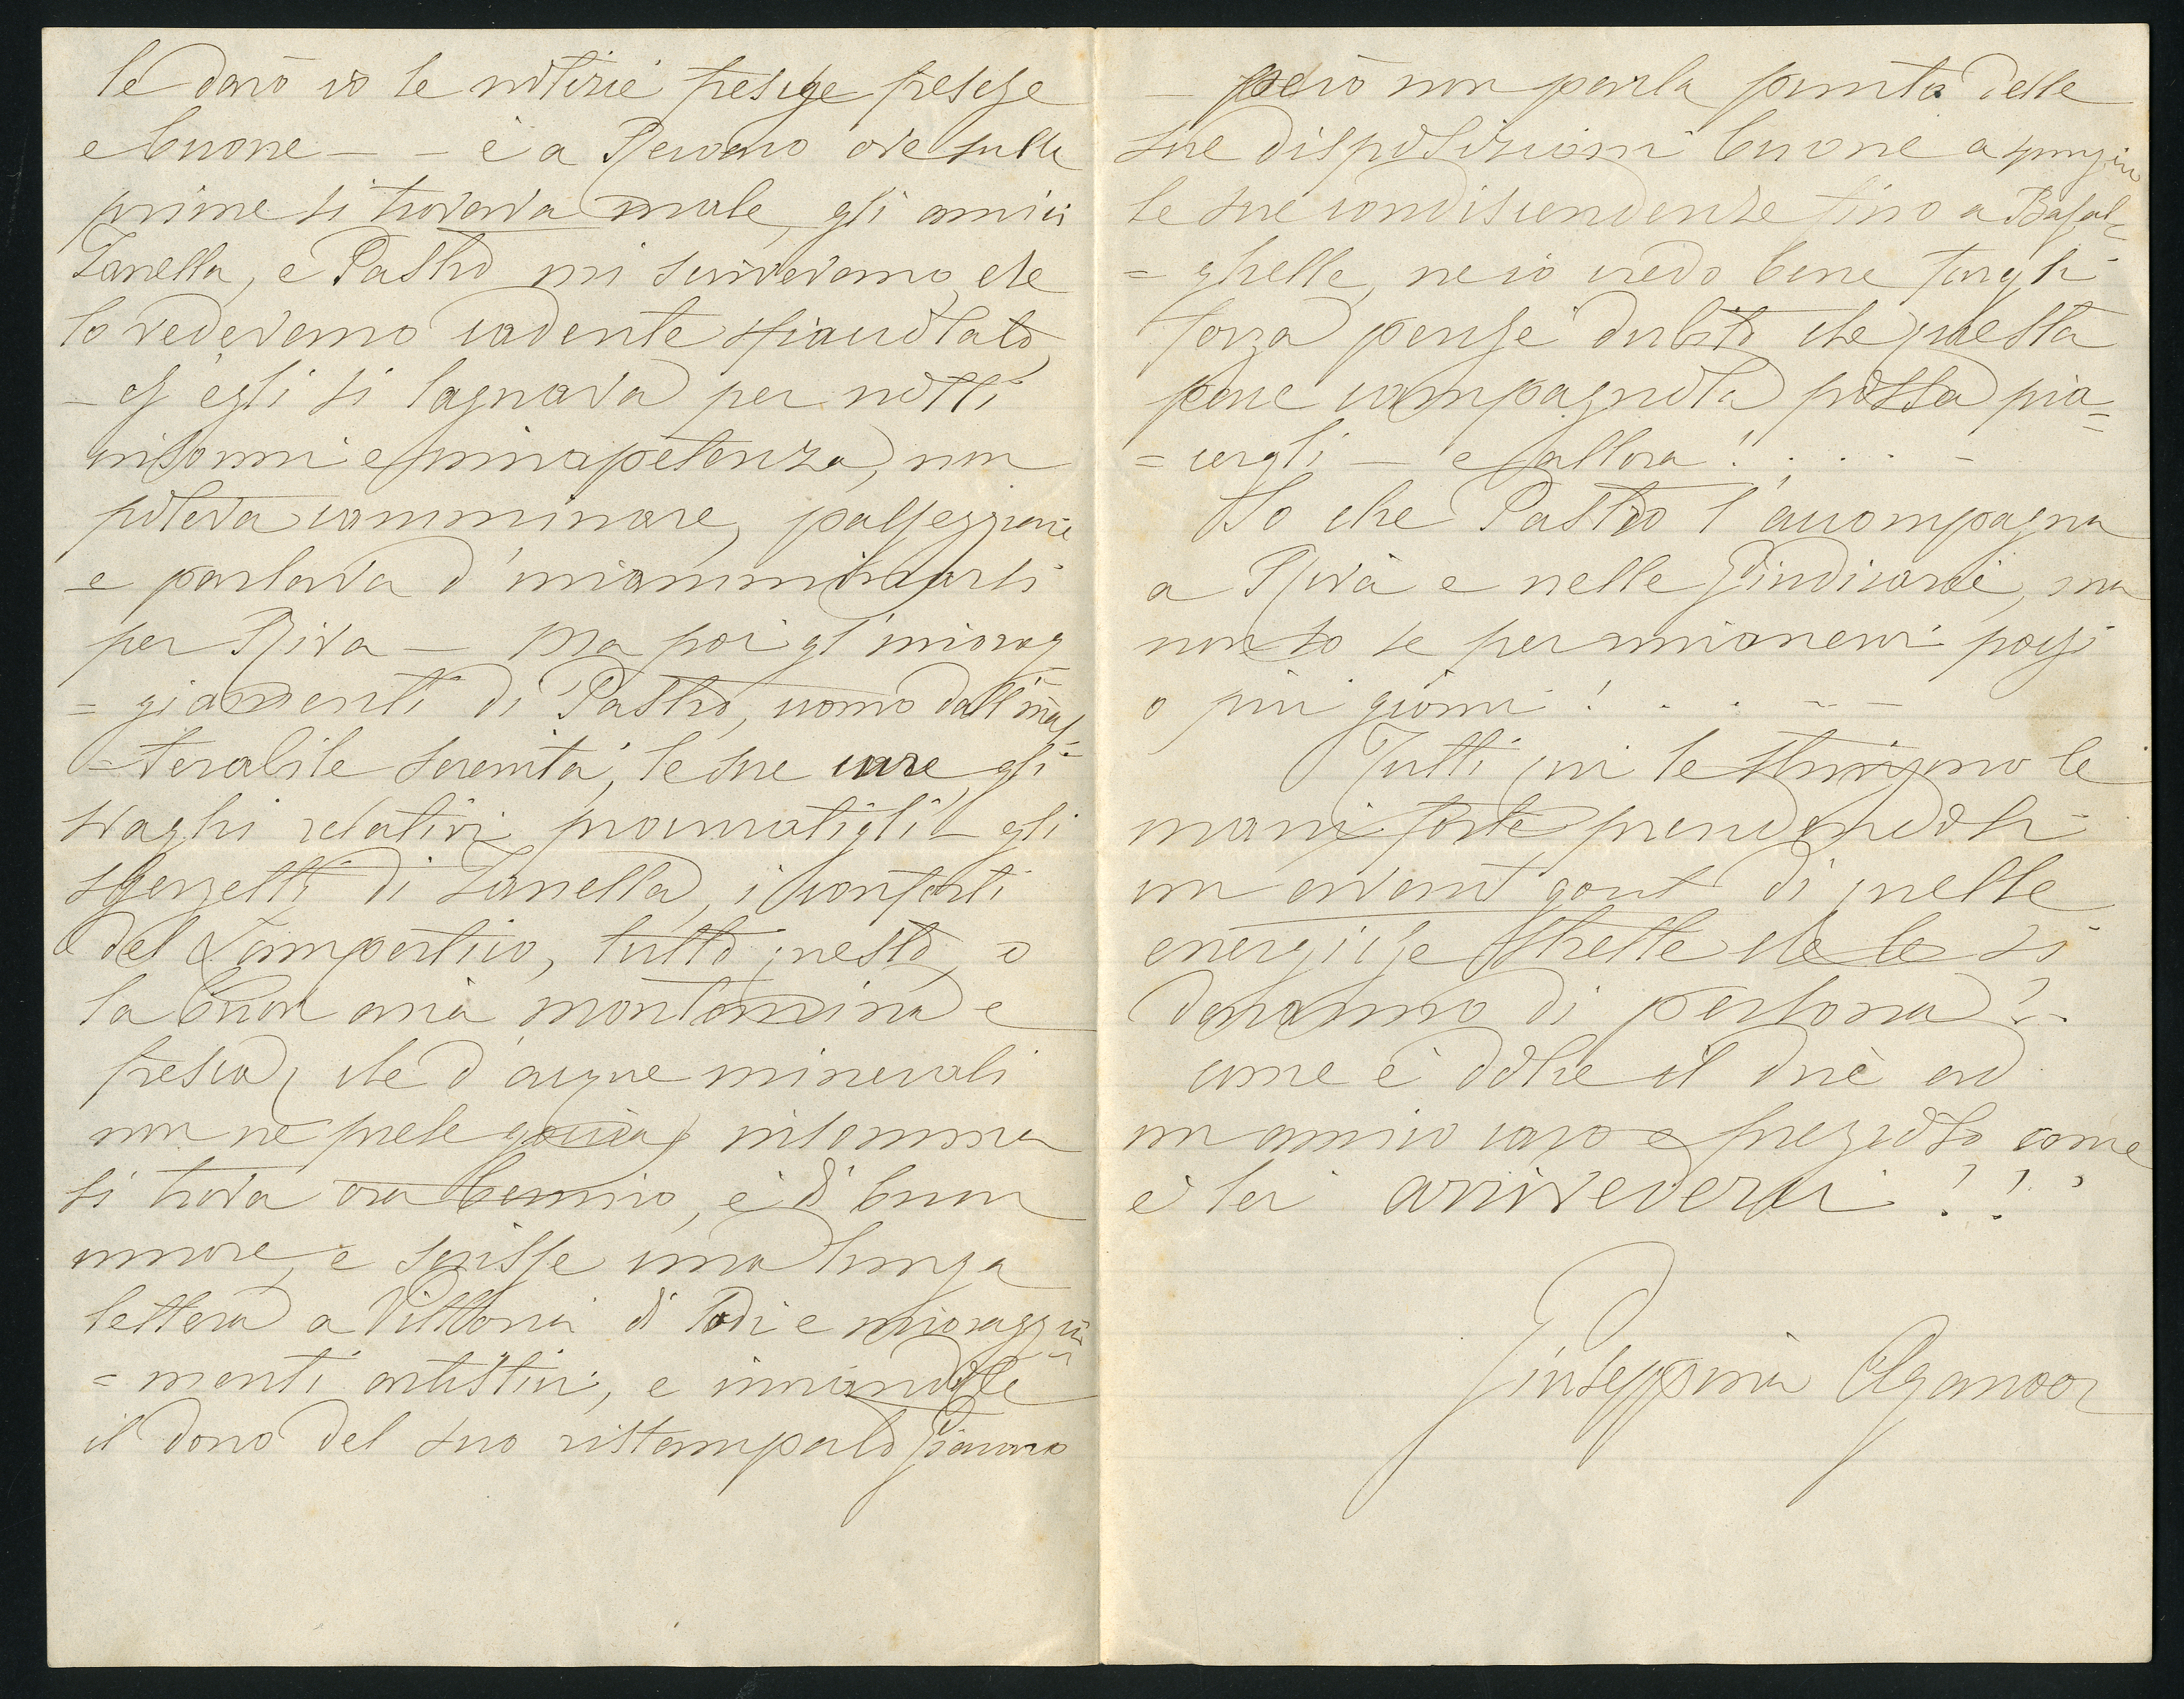 le darò io le notizie fresche fresche
e buone — — è a Recoaro ove sulle
prime si trovava male, gli amici
Zanella, e Pastro mi scrivevano che
lo vedevano cadente sfiaccolato,
— ed egli si lagnava per notti
insonni e inapetenza, non
poteva camminare, passeggiare
e parlava d'incamminarsi
per Riva — Ma poi gl'incorag
= giamenti di Pastro, uomo dall'inal
= terabile serenità, le sue cure, gli
svaghi relativi procuratigli — gli
scherzetti di Zanella, i conforti
del Lampertico, tutto questo, o
la buon aria montanina e
fresca, che d'acque minerali
non ne prese goccia, insomma
si trova ora benino, è di buon
umore, e scrisse una lunga
lettera a Vittoria di lodi e incoraggia
= menti artistici, e inviandole
il dono del suo ristampato Giacomo
— però non parla punto delle
sue disposizioni buone a spingere
le sue condiscendenze fino a Basal=
= ghelle, ne io credo bene fargli
forza perchè dubito che questa
pace campagnola possa pia=
= cergli — e allora! . . . . –
So che Pastro l'accompagna
a Riva e nelle Giudicarie, ma
non so se per rimanervi pochi
o più giorni! . . . – –
Tutti qui le stringono le
mani forte prendendosi
un avant gout di quelle
energiche strette che le si
daranno di persona! . .
come è dolce il dire ad
un amico caro e prezioso come
è lei arrivederci!!!
Giuseppina Aganoor